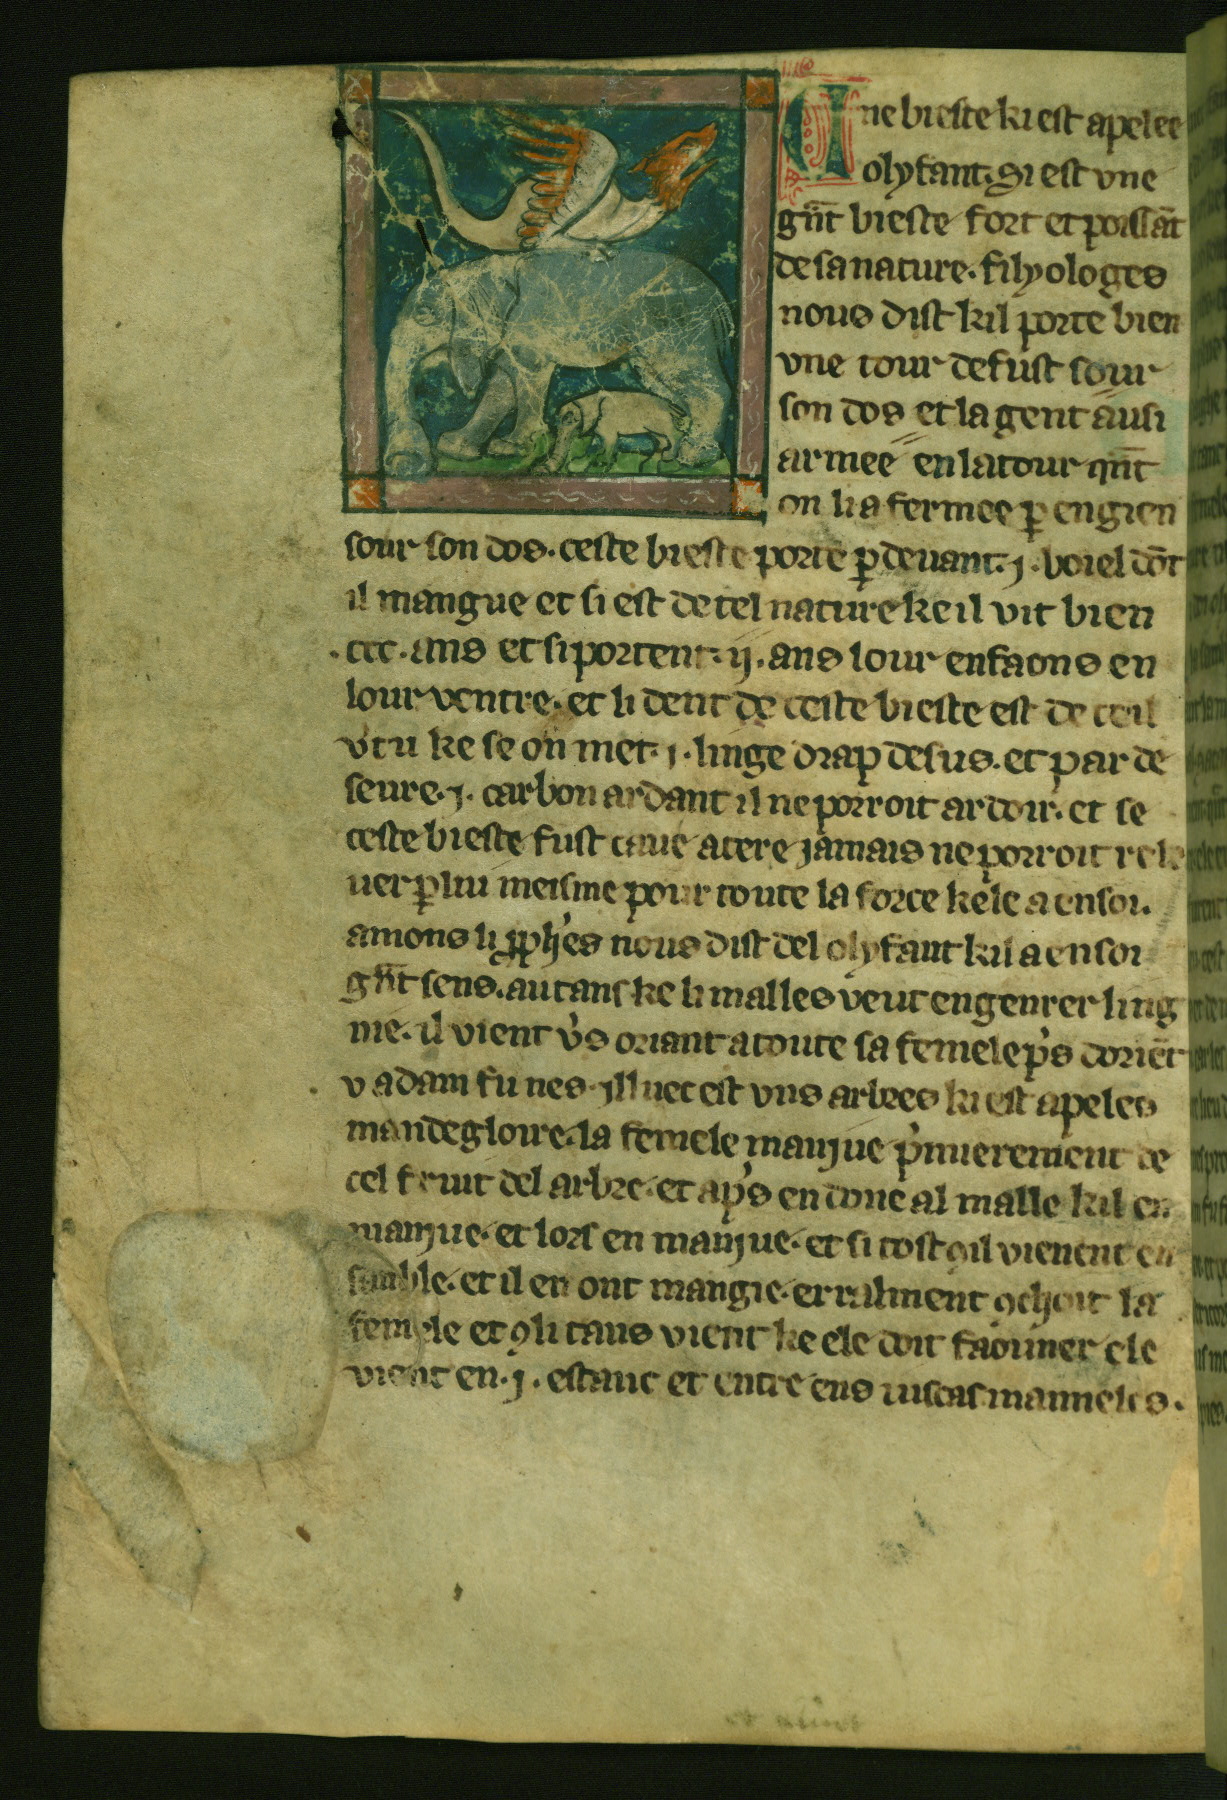 Une bieste ki est apelee
olyfant. Si est vne
gñt bieste fort et poissāt
de sa nature. filyologes
nous dist kil porte bien
vne tour de fust sour
son dos et la gent ausi
armee en la tour qñt
on li a fermee ꝑ engien
sour son dos. ceste bieste porte ꝑ deuant .j. boiel dōt
il mangue et si est de tel nature ke il vit bien
.ccc. ans et si portent .ij. ans lour enfaons en
lour ventre. et li dent de ceste bieste est de ceil
vtu ke se on met .j. linge drap desus. et par de
seure .j. carbon ardant il ne porroit ardoir. et se
ceste bieste fust caue a tere jamais ne porroit rele
uer ꝑ lui meisme pour toute la force kele a en soi.
amons li ꝓph'es nous dist del olyfant kil a en soi
gñt sens. au tans ke li malles veut engenrer ling
nie. il vient v's oriant a toute sa femele p's doriēt
v adam fu nes. illuec est vns arbres ki est apeles
mandegloire. la femele manjue p'mierement de
cel fruit del arbre. et ap's en done al malle kil en
manjue. et lors en manjue. et si tost ꝯil vienent en
samble. et il en ont mangie. erralment ꝯchoit la
femele et ꝯ li tans vient ke ele doit faouner ele
vient en .j. estanc et entre ens iuscas mameles.